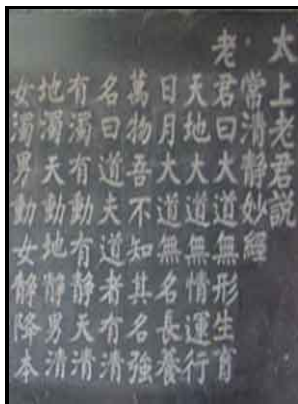 太上老君説
常清靜妙經
老君曰大道無形生育
天地大道無情運行
日月大道無名長養
萬物吾不知其名強
名曰道夫道者有清
有濁有動有靜天清
地濁天動地靜男清
女濁男動女靜降本